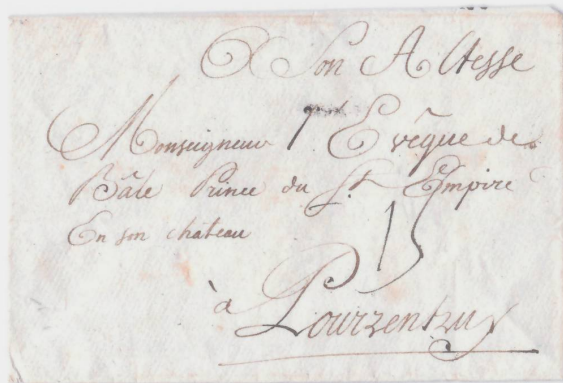 A Son Altesse
Monseigneur l' Evêque de
Bâle Prince du St. Empire
En son château
15
à Pourrentruy